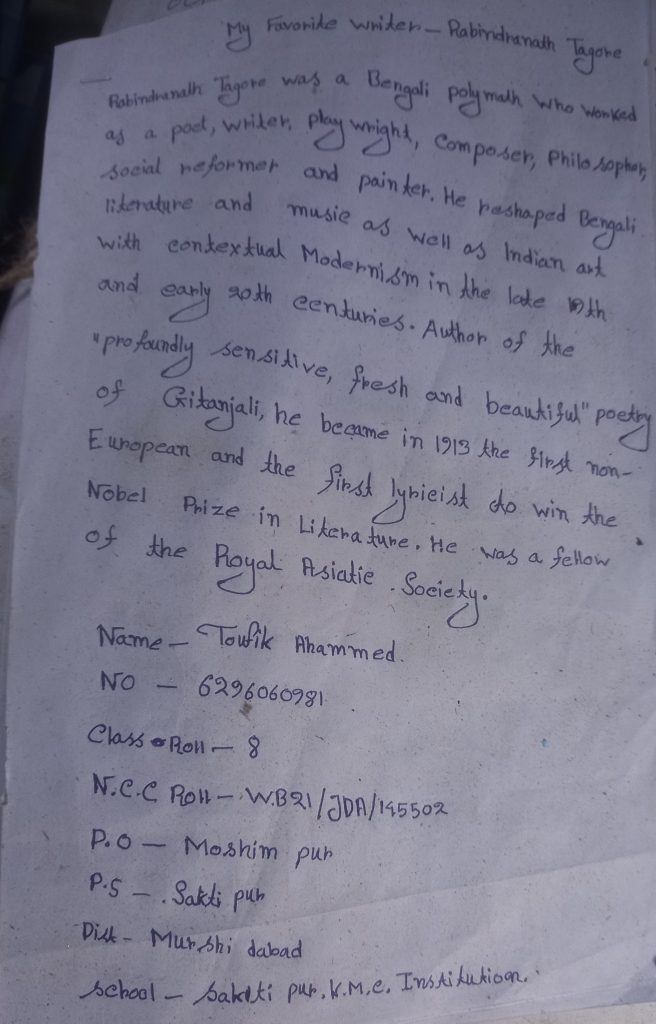 My Favorite writer – Rabindranath Tagore
Rabindranath Tagore was a Bengali polymath who worked
as a poet, writer, play wright, Composer, Philosopher,
social reformer and painter. He reshaped Bengali
literature and music as well as Indian art
with contextual Modernism in the late 19th
and early 20th centuries. Author of the
"profoundly sensitive, fresh and beautiful" poetry
of Gitanjali, he became in 1913 the first non-
European and the first lyricist to win the
Nobel Prize in Literature. He was a fellow
of the Royal Asiatic Society.
Name – Toufik Ahammed.
NO – 6296060981
Class Roll – 8
N.C.C Roll – W.B21/JDA/145502
P.O – Moshim pur
P.S – Sakti pur
Dist – Murshi dabad
School – Sakti pur. K.M.C. Institution.